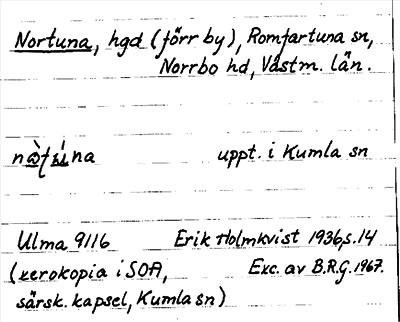 Nortuna, hgd (förr by), Romfartuna sn,
Norrbo hd, Västm. län.
uppt. i Kumla sn
Ulma 9116 Erik Holmkvist 1936, s. 14
(xerokopia i SOA, Exc. av B.R.G. 1967.
särsk. kapsel, Kumla sn)